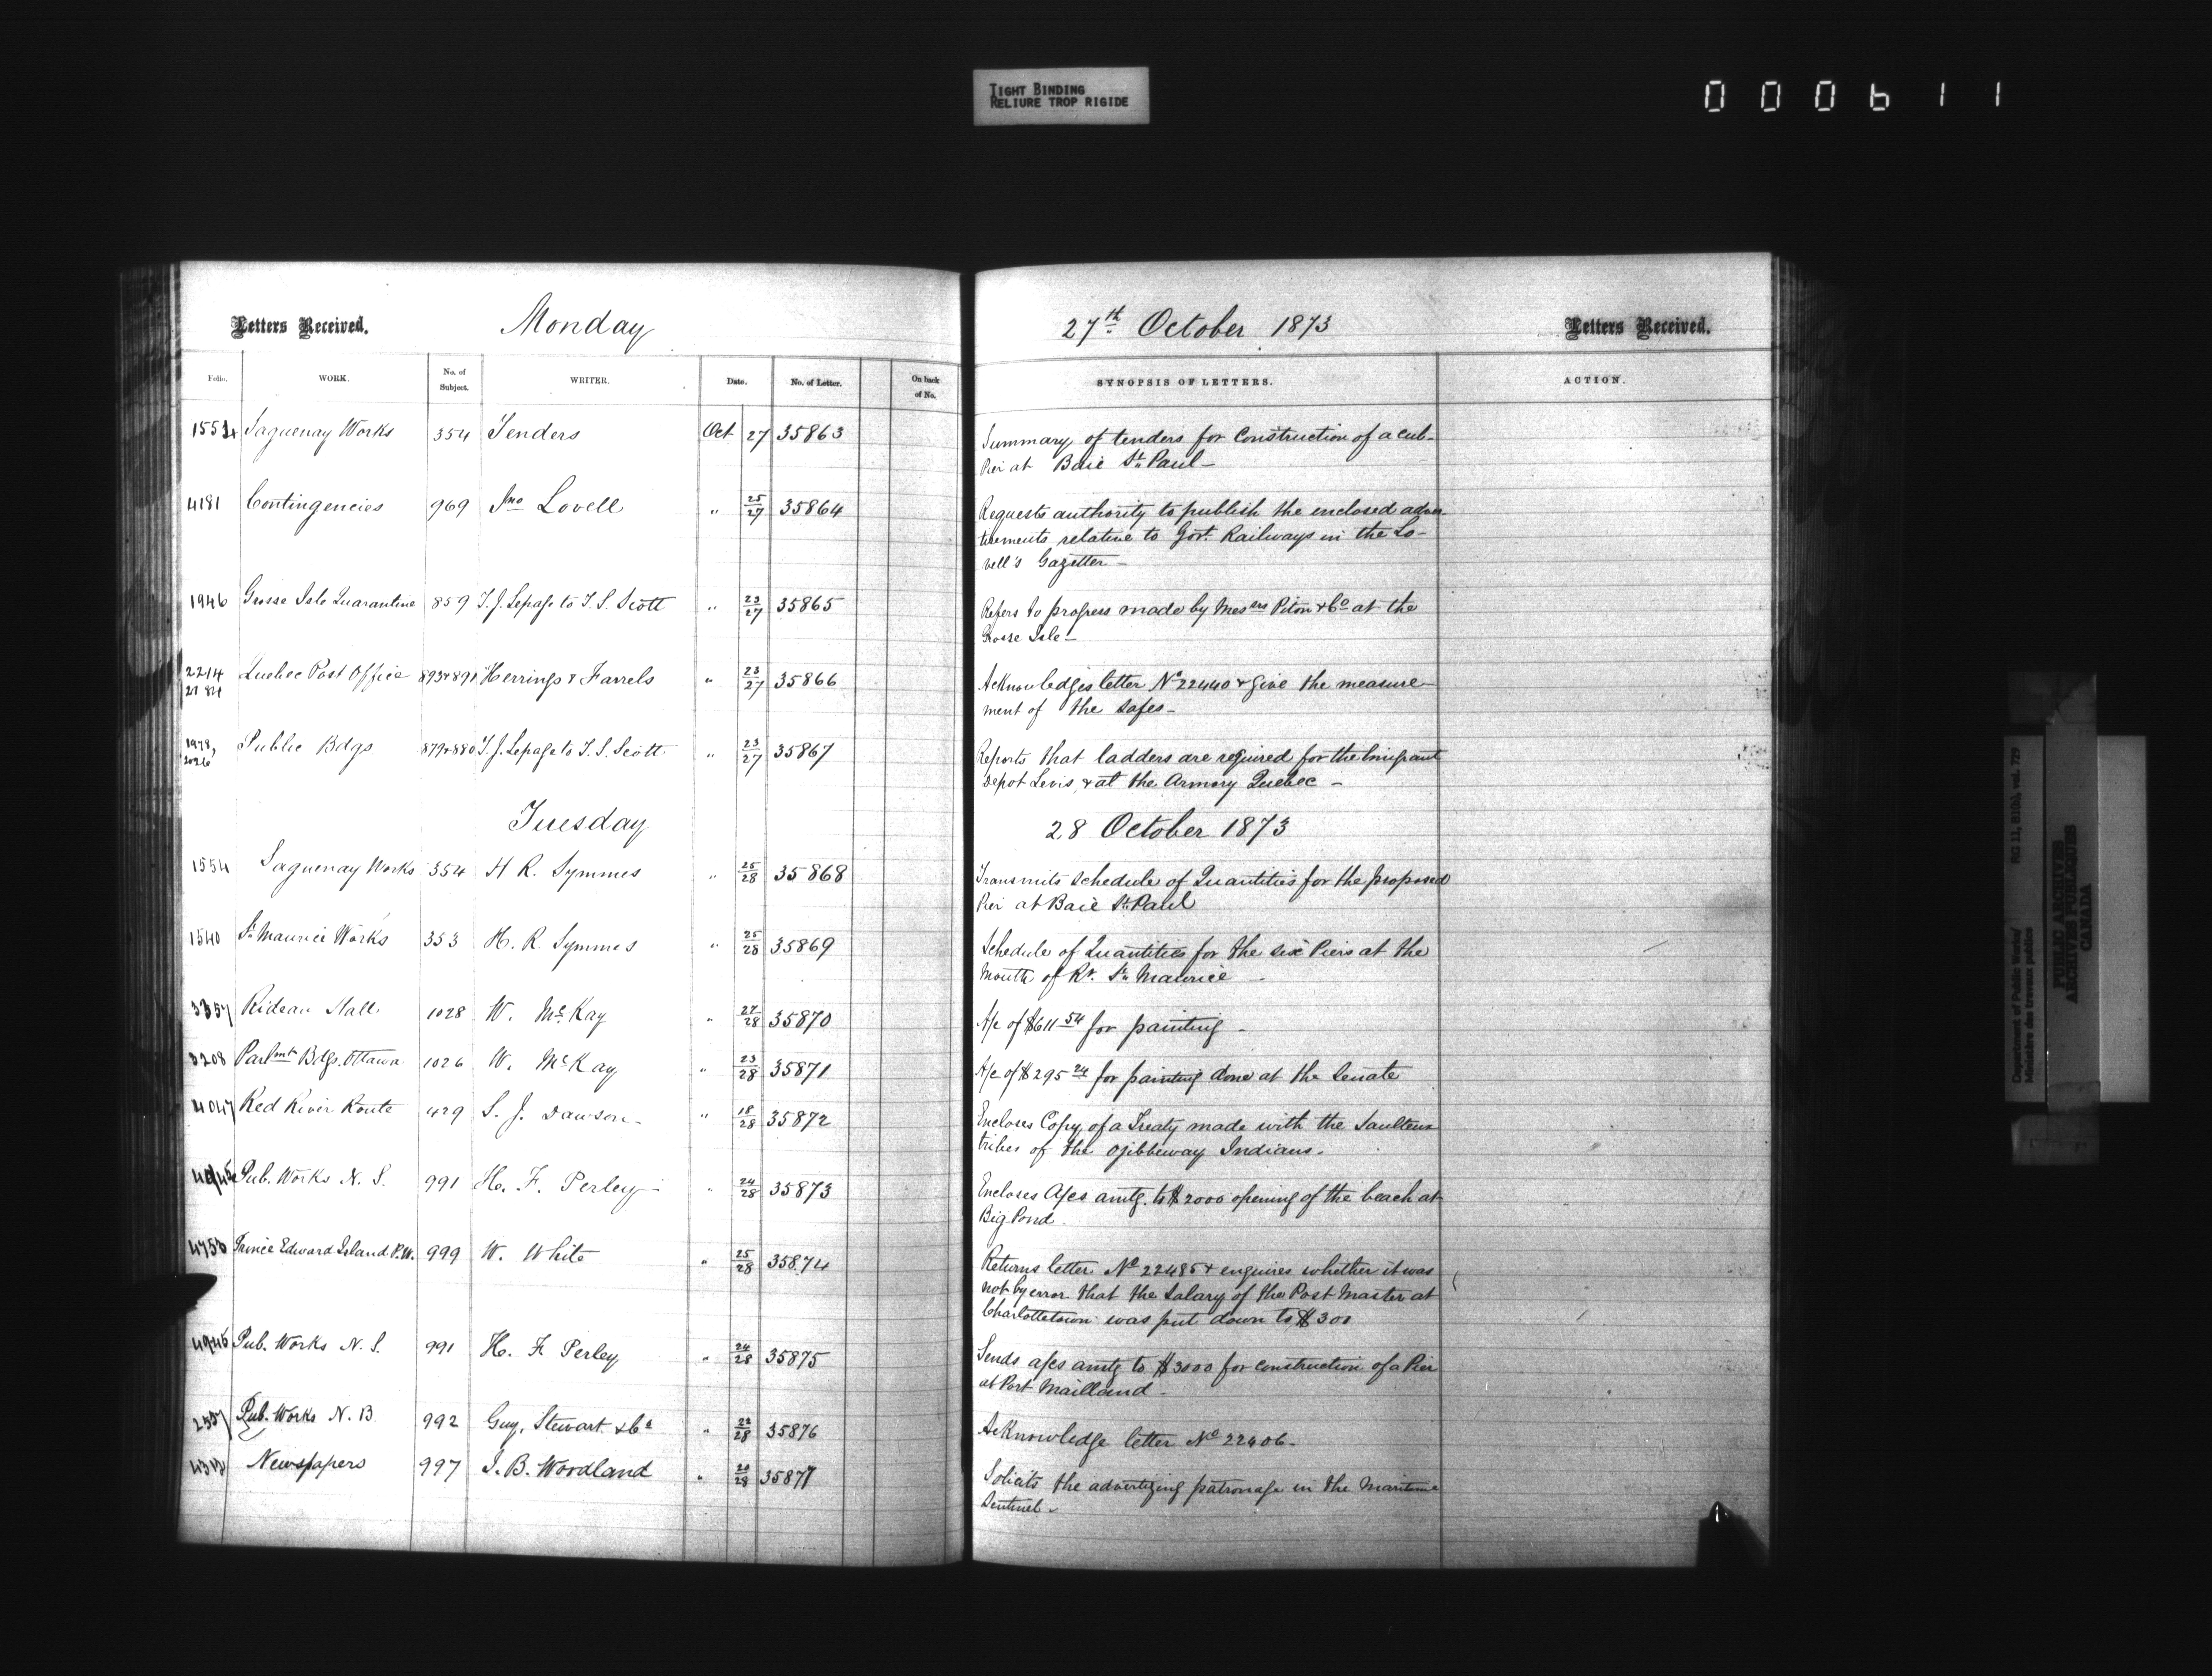 TIGHT BINDING
RELIURE TROP RIGIDE
000611
Letters Received. Monday 27th October 1873 Letters Received.
Folio. WORK. No. of Subject. WRITER. Date. No. of Letter. On back of No. SYNOPSIS OF LETTERS. ACTION.
1554 Saguenay Works 354 Tenders Oct 27 35863 Summary of tenders for Construction of a cub-
Pier at Baie St. Paul -
4181 Contingencies 969 Jno Lovell " 25/27 35864 Requests authority to publish the enclosed adver-
tisements relative to Govt. Railways in the Lo-
vell's Gazetter -
1946 Grosse Isle Quarantine 859 T. J. Lepage to T. S. Scott " 23/27 35865 Refers to progress made by Messrs Piton & Co at the
Grosse Isle -
2214 Quebec Post Office 893 & 891 Herrings & Farrels " 23/27 35866 Acknowledges letter No 22440 & give the measure-
21 84 ment of the safes -
1978, Public Bdgs 879 & 880 T. J. Lepage to T. S. Scott " 23/27 35867 Reports that ladders are required for the Emigrant
2026 Depot Levis, & at the Armory Quebec -
Tuesday 28 October 1873
1554 Saguenay Works 354 H R. Symmes " 25/28 35868 Transmits Schedule of Quantities for the proposed
Pier at Baie St. Paul
1540 St. Maurice Works 353 H. R. Symmes " 25/28 35869 Schedule of Quantities for the six Piers at the
Mouth of Rr. St. Maurice -
3357 Rideau Hall 1028 W. McKay " 27/28 35870 A/c of $611 54 for painting -
3208 Parlmt Bdgs. Ottawa 1026 W. McKay " 23/28 35871 A/c of $295 24 for painting done at the Senate
4047 Red River Route 429 S. J. Dawson - " 18/28 35872 Encloses Copy of a Treaty made with the Saulteux
tribes of the Ojibbeway Indians.
Pub. Works N. S. 991 H. F. Perley - " 24/28 35873 Encloses A/cs amtg. to $2000 opening of the beach at
Big Pond.
4753 Prince Edward Island P.W. 999 W. White " 25/28 35874 Returns letter No 22485 & enquires whether it was
not by error that the Salary of the Post Master at
Charlottetown was put down to $300
4945 Pub. Works N. S. 991 H. F. Perley " 24/28 35875 Sends a/cs amtg to $3000 for construction of a Pier
at Port Mailland -
2557 Pub. Works N. B. 992 Guy, Stewart & Co " 22/28 35876 Acknowledge letter No 22406 -
Newspapers 997 J. B. Woodland " 20/28 35877 Solicits the advertizing patronage in the Maritime
Sentinel -
Department of Public Works/
Ministère des travaux publics
RG 11, B1(b), vol. 729
PUBLIC ARCHIVES
ARCHIVES PUBLIQUES
CANADA